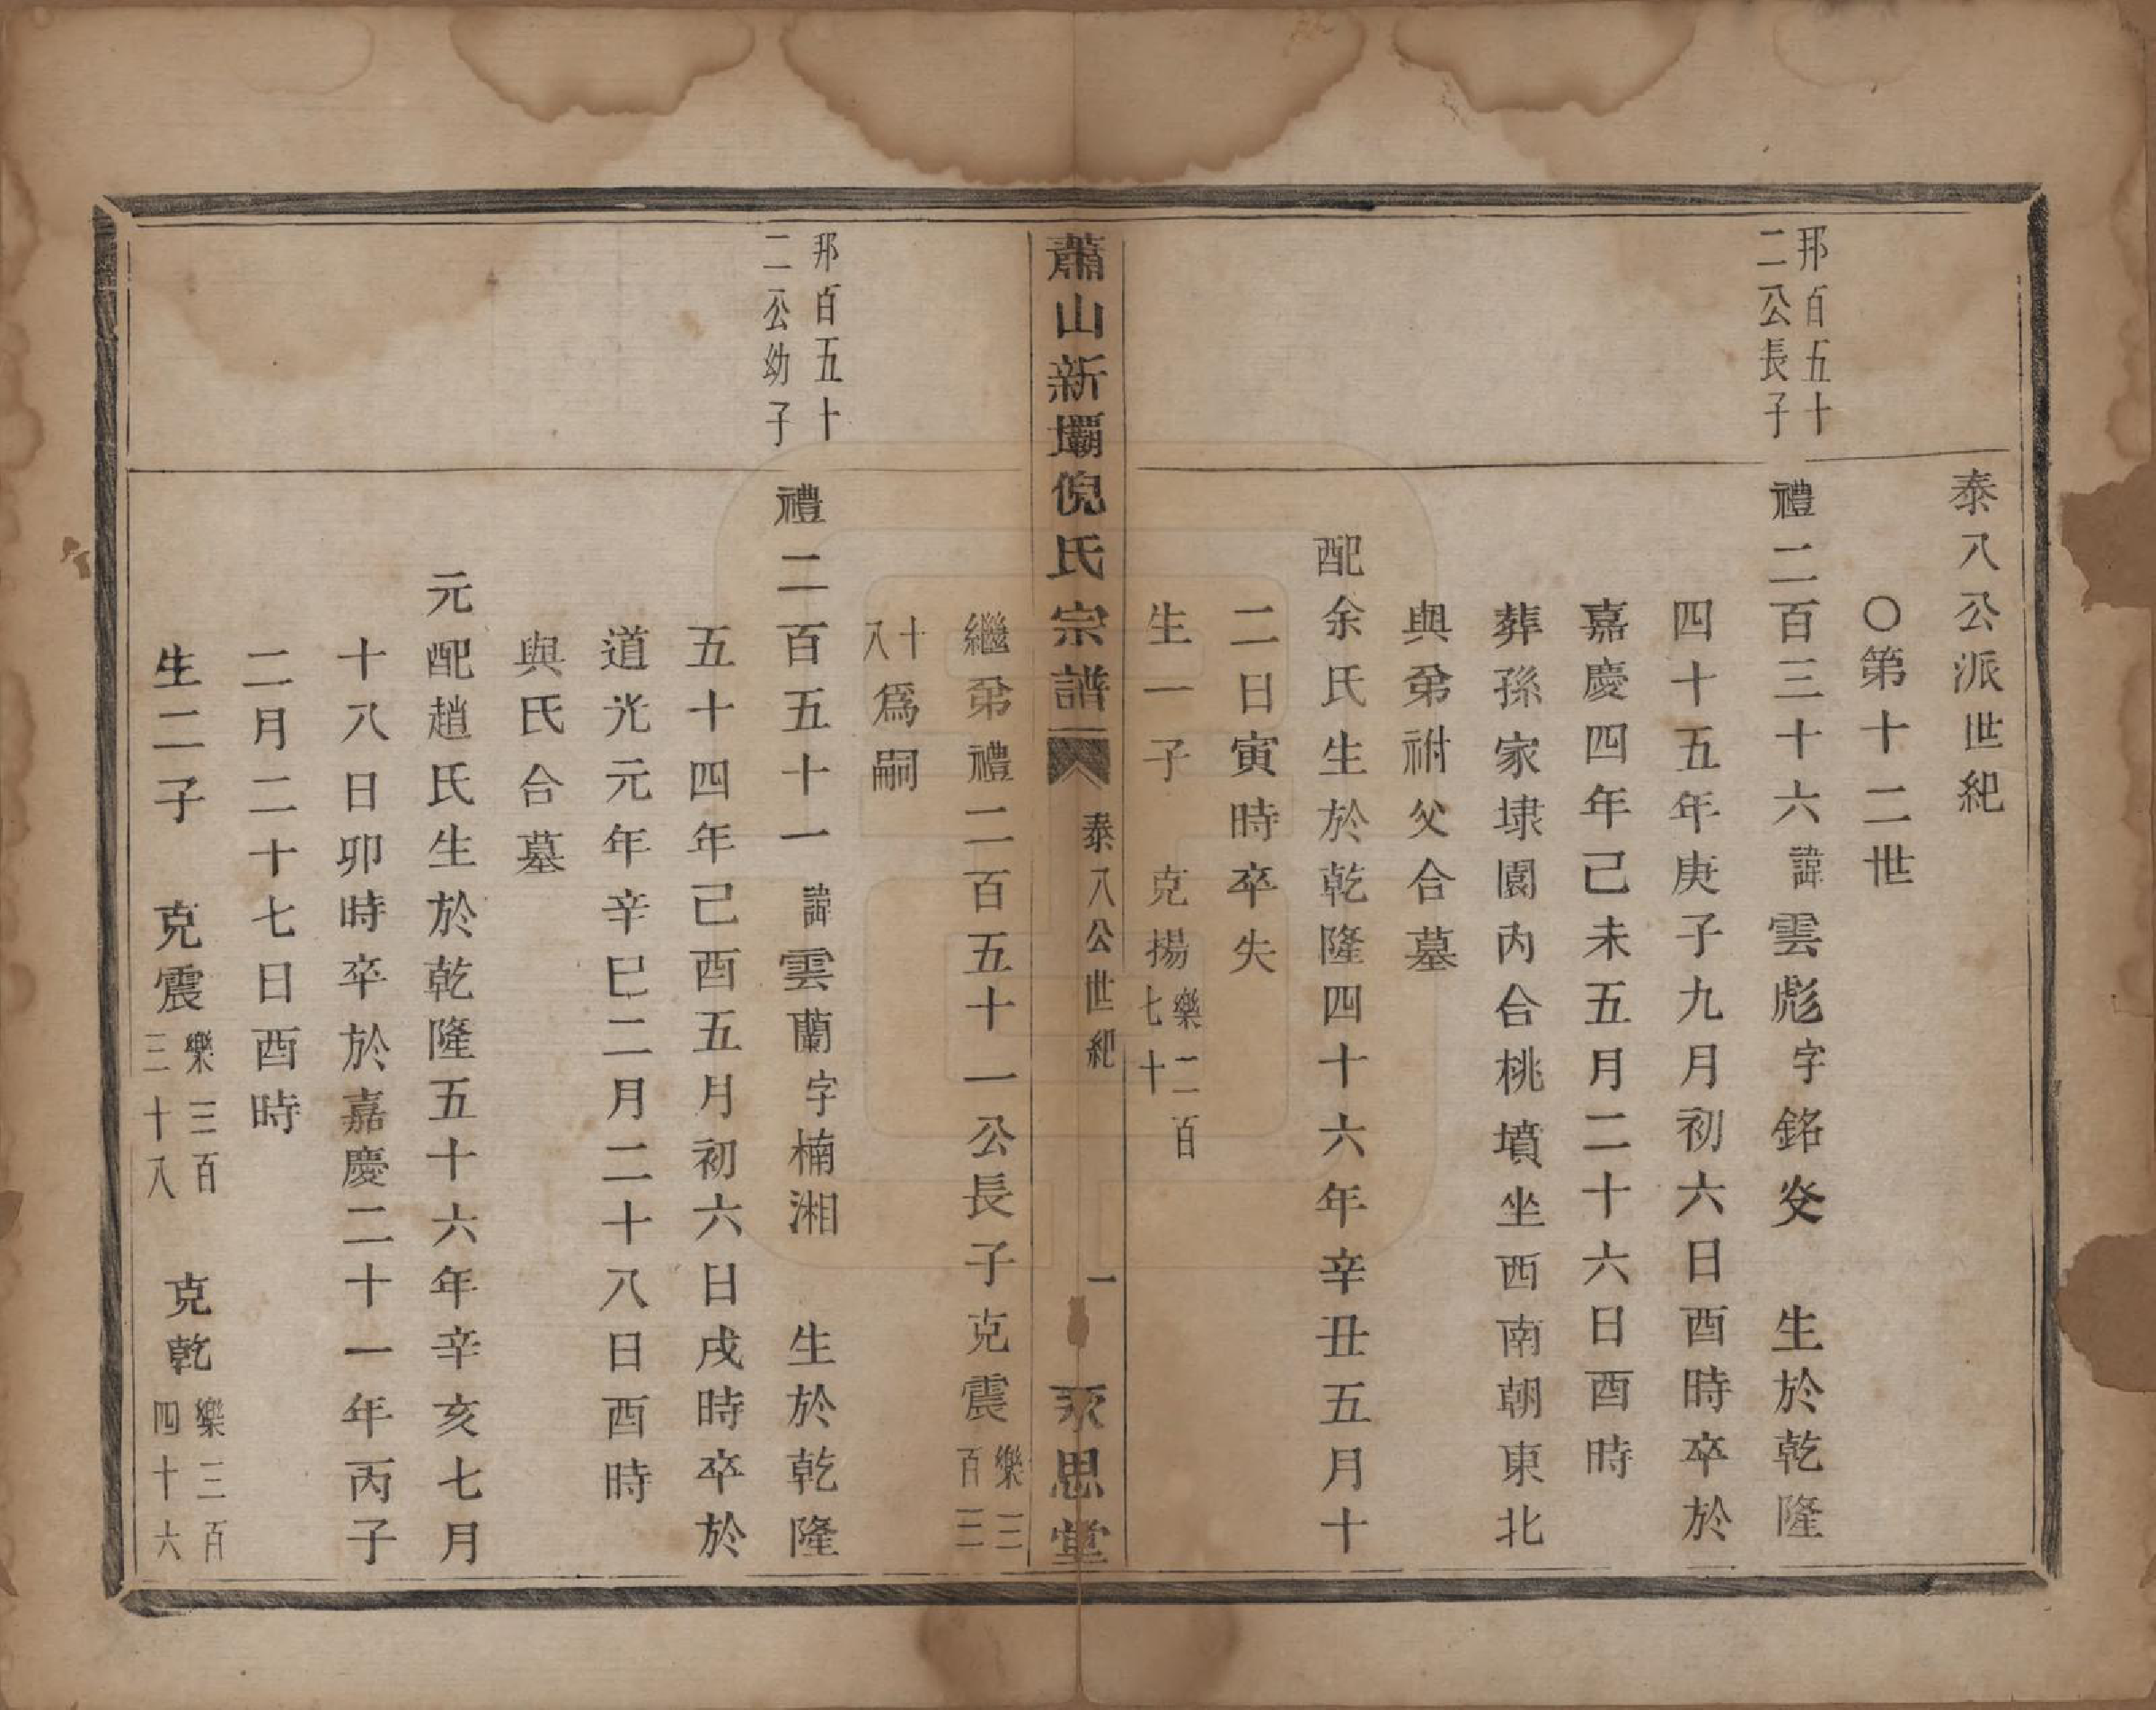 泰八公派世紀
〇第十二世
邦百五十
二公長子
禮二百三十六諱雲彪字銘㸚 生於乾隆
四十五年庚子九月初六日酉時卒於
嘉慶四年己未五月二十六日酉時
葬孫家埭園內合桃墳坐西南朝東北
與弟祔父合墓
配余氏生於乾隆四十六年辛丑五月十
二日寅時卒失
生一子 克揚樂二百七十
蕭山新壩倪氏宗譜 泰八公世紀 一 思堂
繼弟禮二百五十一公長子克震樂三百三
十八爲嗣
邦百五十
二公幼子
禮二百五十一諱雲蘭字楠湘 生於乾隆
五十四年己酉五月初六日戌時卒於
道光元年辛巳二月二十八日酉時
與氏合墓
元配趙氏生於乾隆五十六年辛亥七月
十八日卯時卒於嘉慶二十一年丙子
二月二十七日酉時
生二子 克震樂三百三十八 克乾樂三百四十六